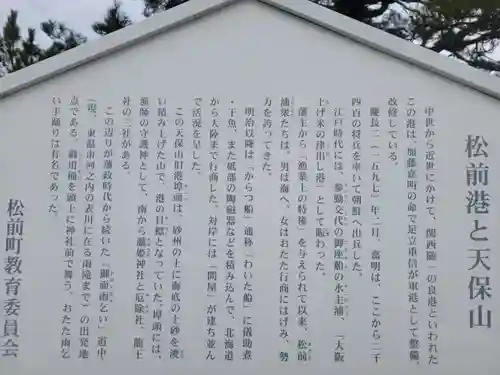 松前港と天保山
中世から近世にかけて、関西随一の良港といわれた
この港は、加藤嘉明の命で足立重信が軍港として整備、
改修している。
慶長二(一五九七)年二月、嘉明は、ここから二千
四百の将兵を率いて朝鮮へ出兵した。
江戸時代には、参勤交代の御座船の水主浦、「大阪
上げ米の津出し港」として賑わった。
藩主から「漁業上の特権」を与えられて以来、松前
漁衆たちは、男は海へ、女はおたた行商にはげみ、勢
力を誇ってきた。
明治以降は「からつ船」通称「わいた船」に儀助煮
・干魚、また砥部の陶磁器などを積み込んで、北海道
から大陸まで行商した。対岸には「問屋」が建ち並ん
で活況を呈した。
この天保山旧港埠頭は、砂州の上に海底の土砂を浚
い積み上げた山で、港の目標となっていた。埠頭には、
漁師の守護神として、南から龗姫神社と厄除社、龍王
社の三社がある。
この辺りが藩政時代から続いた「御面雨乞い」道中
(現、東温市河之内の表川に在る雨滝まで)の出発地
点である。御用桶を頭上に神社前で舞う、おたた雨乞
い手踊りは有名であった。
松前町教育委員会